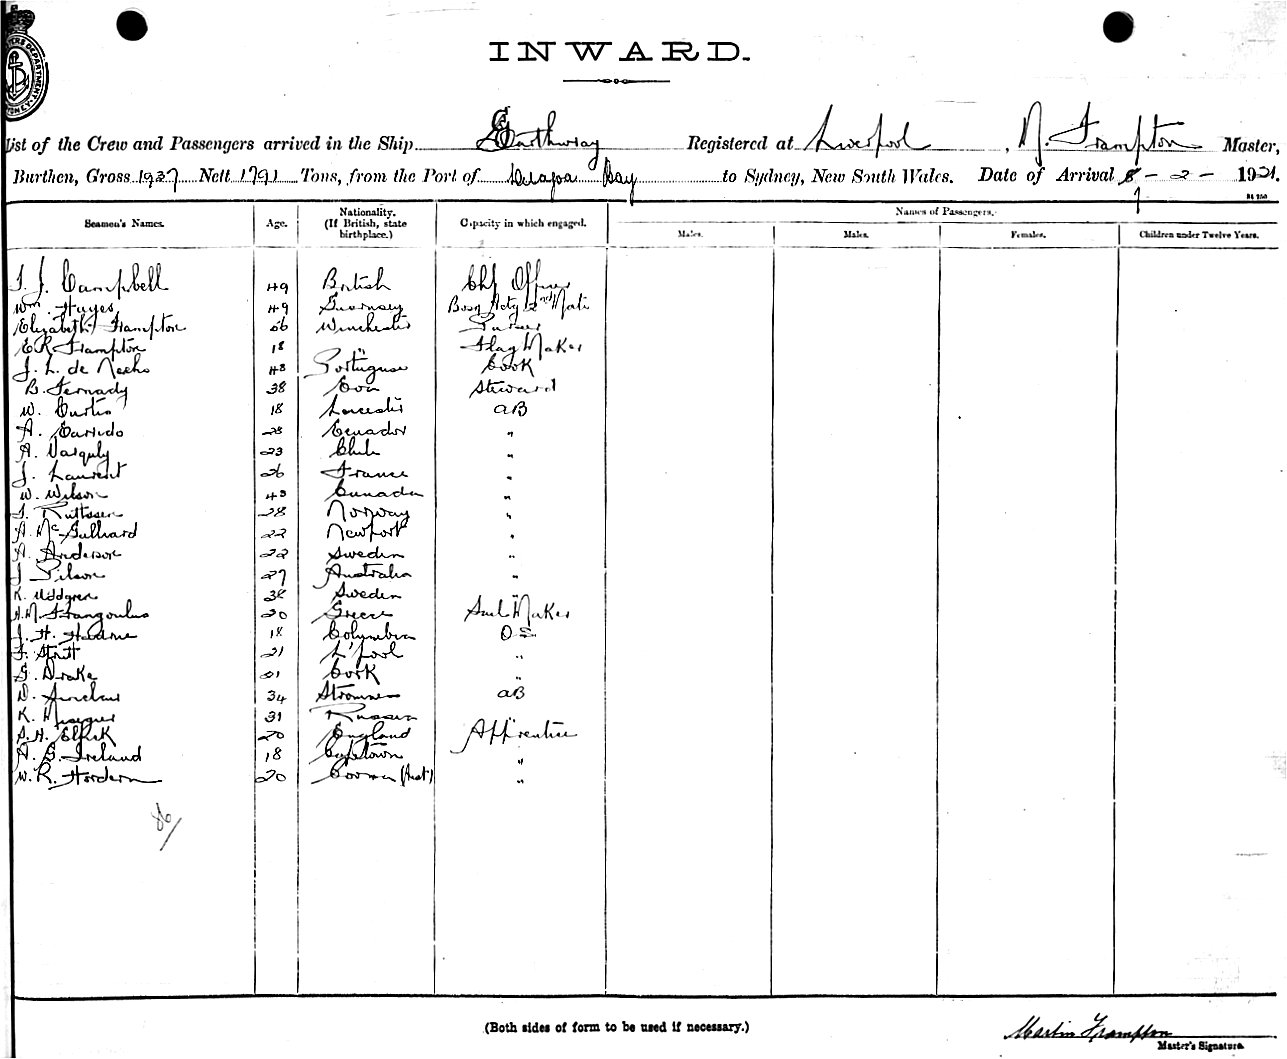 INWARD.
List of the Crew and Passengers arrived in the Ship Garthwray Registered at Liverpool, M. Frampton Master,
Burthen, Gross 1937 Nett 1791 Tons, from the Port of Bay to Sydney, New South Wales. Date of Arrival 8 - 2 - 1921.
Seamen's Names. Age. Nationality. (If British, state birthplace.) Capacity in which engaged. Names of Passengers.
Males. Males. Females. Children under Twelve Years.
J. Campbell 49 British Chf Officer
Wm. Hayes 49 Guernsey Bosn Actg 2nd Mate
Elizabeth Frampton 56 Winchester Purser
E R Frampton 18 " Flag Maker
J. L. de 48 Portuguse Cook
B. Fernady 38 Goa Steward
W. Curtis 18 Leicester AB
A. Garrido 28 Ecuador "
A. 23 Chile "
J. Laurent 26 France "
W. Wilson 43 Canada "
28 Norway "
A. Mc Gulliard 22 Newport "
A. Anderson 22 Sweden "
J 27 Australia "
K. Uddgren 38 Sweden "
A. M. Frangoulus 20 Greece Sail Maker
J. H. 18 Columbia O S
F. Stott 21 L'pool "
G. Drake 21 Cork "
D. Sinclair 34 Stromness AB
K. 31 Russia "
S. H. Elfick 20 England Apprentice
A. G. Ireland 18 Capetown "
W. R. Hordern 20 (Aust) "
(Both sides of form to be used if necessary.)
Martin Frampton
Master's Signature.